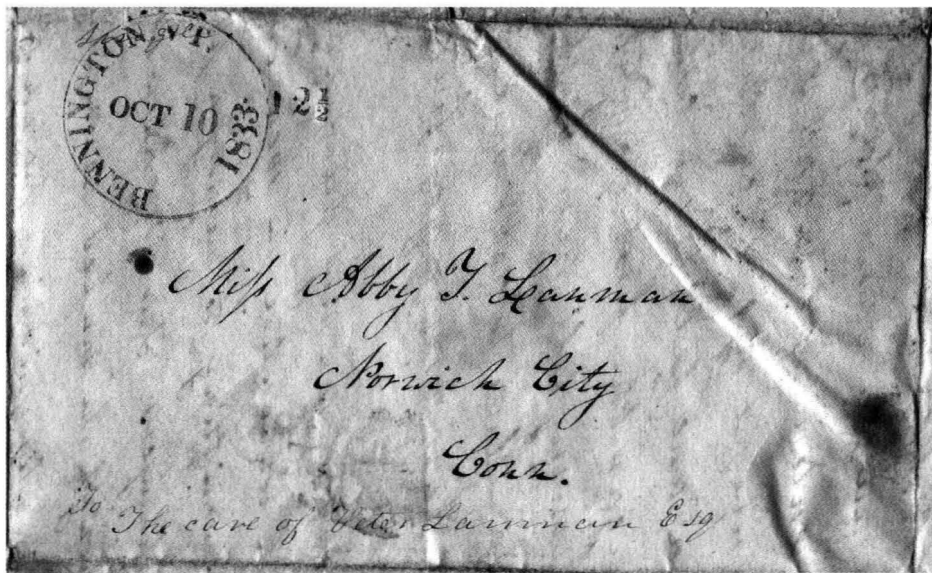 BENNINGTON, VT.
OCT 10
1833.
12½
Miſs Abby T. Lanman
Norwich City
Conn.
To The care of Peter Lanman Esq